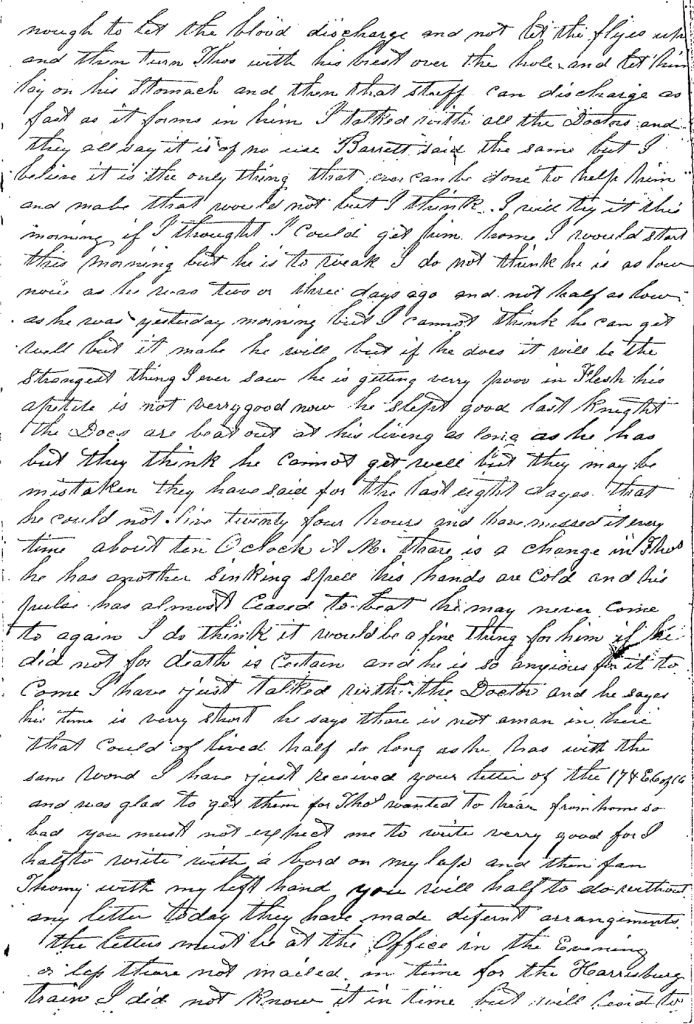 nough to let the blood discharge and not let the flyes up
and then turn Thos with his brest over the hole and let him
lay on his Stomach and then that stuff can discharge as
fast as it forms in him I talked with all the Doctors and
they all say it is of no use Barrett said the same but I
believe it is the only thing that ever can be done to help him
and mabe that would not but I think I will try it this
morning if I thought I could get him home I would start
this morning but he is to weak I do not think he is as low
now as he was two or three days ago and not half as low
as he was yesterday morning but I cannot think he can get
well but it mabe he will but if he does it will be the
Strangest thing I ever saw he is getting verry poor in Flesh his
apetite is not verry good now he slept good last Knight
the Docs are beat out at his living as long as he has
but they think he cannot get well but they may be
mistaken they have said for the last eight dayes that
he could not live twenty four hours and have missed it every
time about ten Oclock A M. thare is a change in Thos
he has another Sinking Spell his hands are Cold and his
pulse has almost Ceased to beat he may never Come
to again I do think it would be a fine thing for him if he
did not for death is Certain and he is so anxious for it to
Come I have just talked with the Doctor and he sayes
his time is verry short he says thare is not a man in here
that Could of lived half so long as he has with the
same wound I have just received your letter of the 17th
and was glad to get them for Thos wanted to hear from home so
bad you must not expect me to write verry good for I
half to write with a bord on my lap and then fan
Thomy with my left hand you will half to do without
any letter today they have made difernt arrangements
the letters must be at the Office in the Evening
or thare not mailed in time for the Harrisburg
train I did not Know it in time but will send to